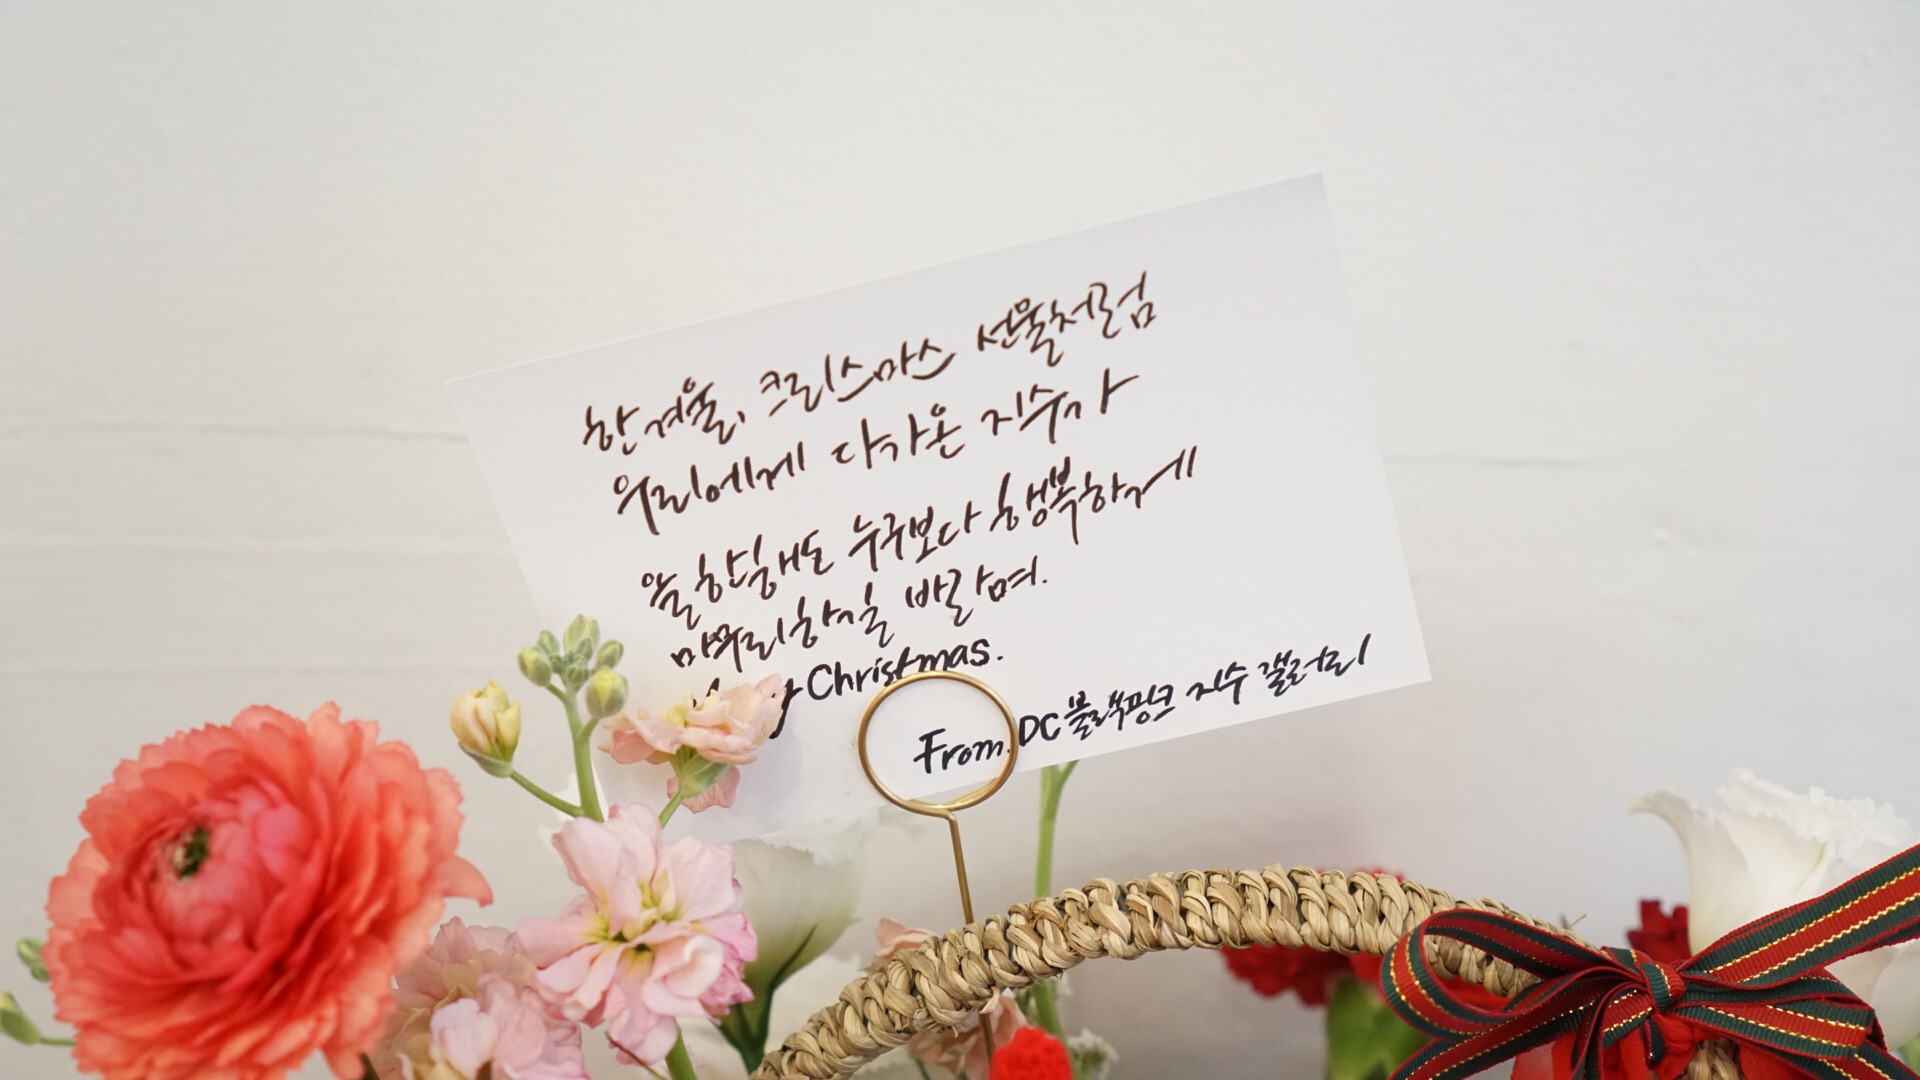 한겨울, 크리스마스 선물처럼
우리에게 다가온 지수가
올 한해도 누구보다 행복하게
마무리하길 바라며.
Christmas.
From. DC블랙핑크 지수 갤러리